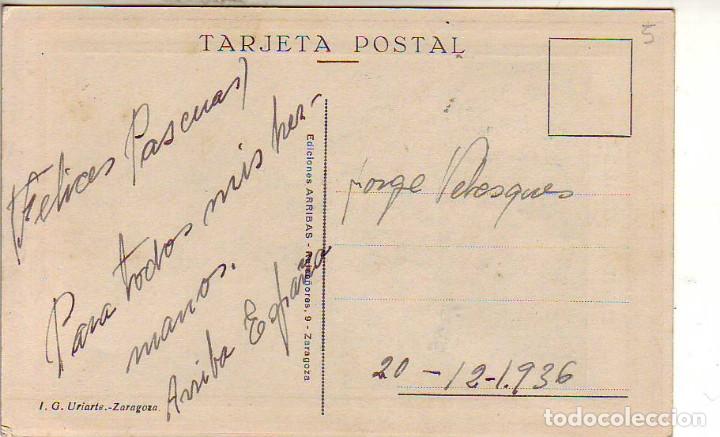 5
TARJETA POSTAL
(Felices Pascuas)
Para todos mis her-
manos.
Arriba España
Ediciones ARRIBAS - 9 - Zaragoza
Jorge
20-12-1.936
I. G. Uriarte.-Zaragoza
todocoleccion